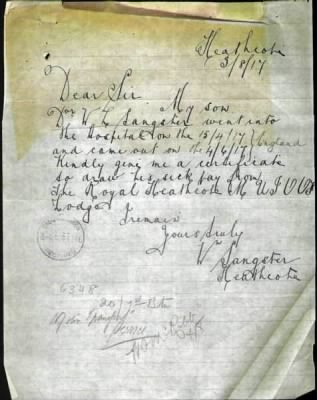 Heathcote
3/8/17
Dear Sir
My son
Por W L Sangster went into
the Hospital on the 15/4/17 England
and came out on the 4/6/17
Kindly give me a certificate
to draw his sick pay from
the Royal Heathcote M U I O O F
Lodge
I remain
Yours truly
Wm Sangster
Heathcote
6348